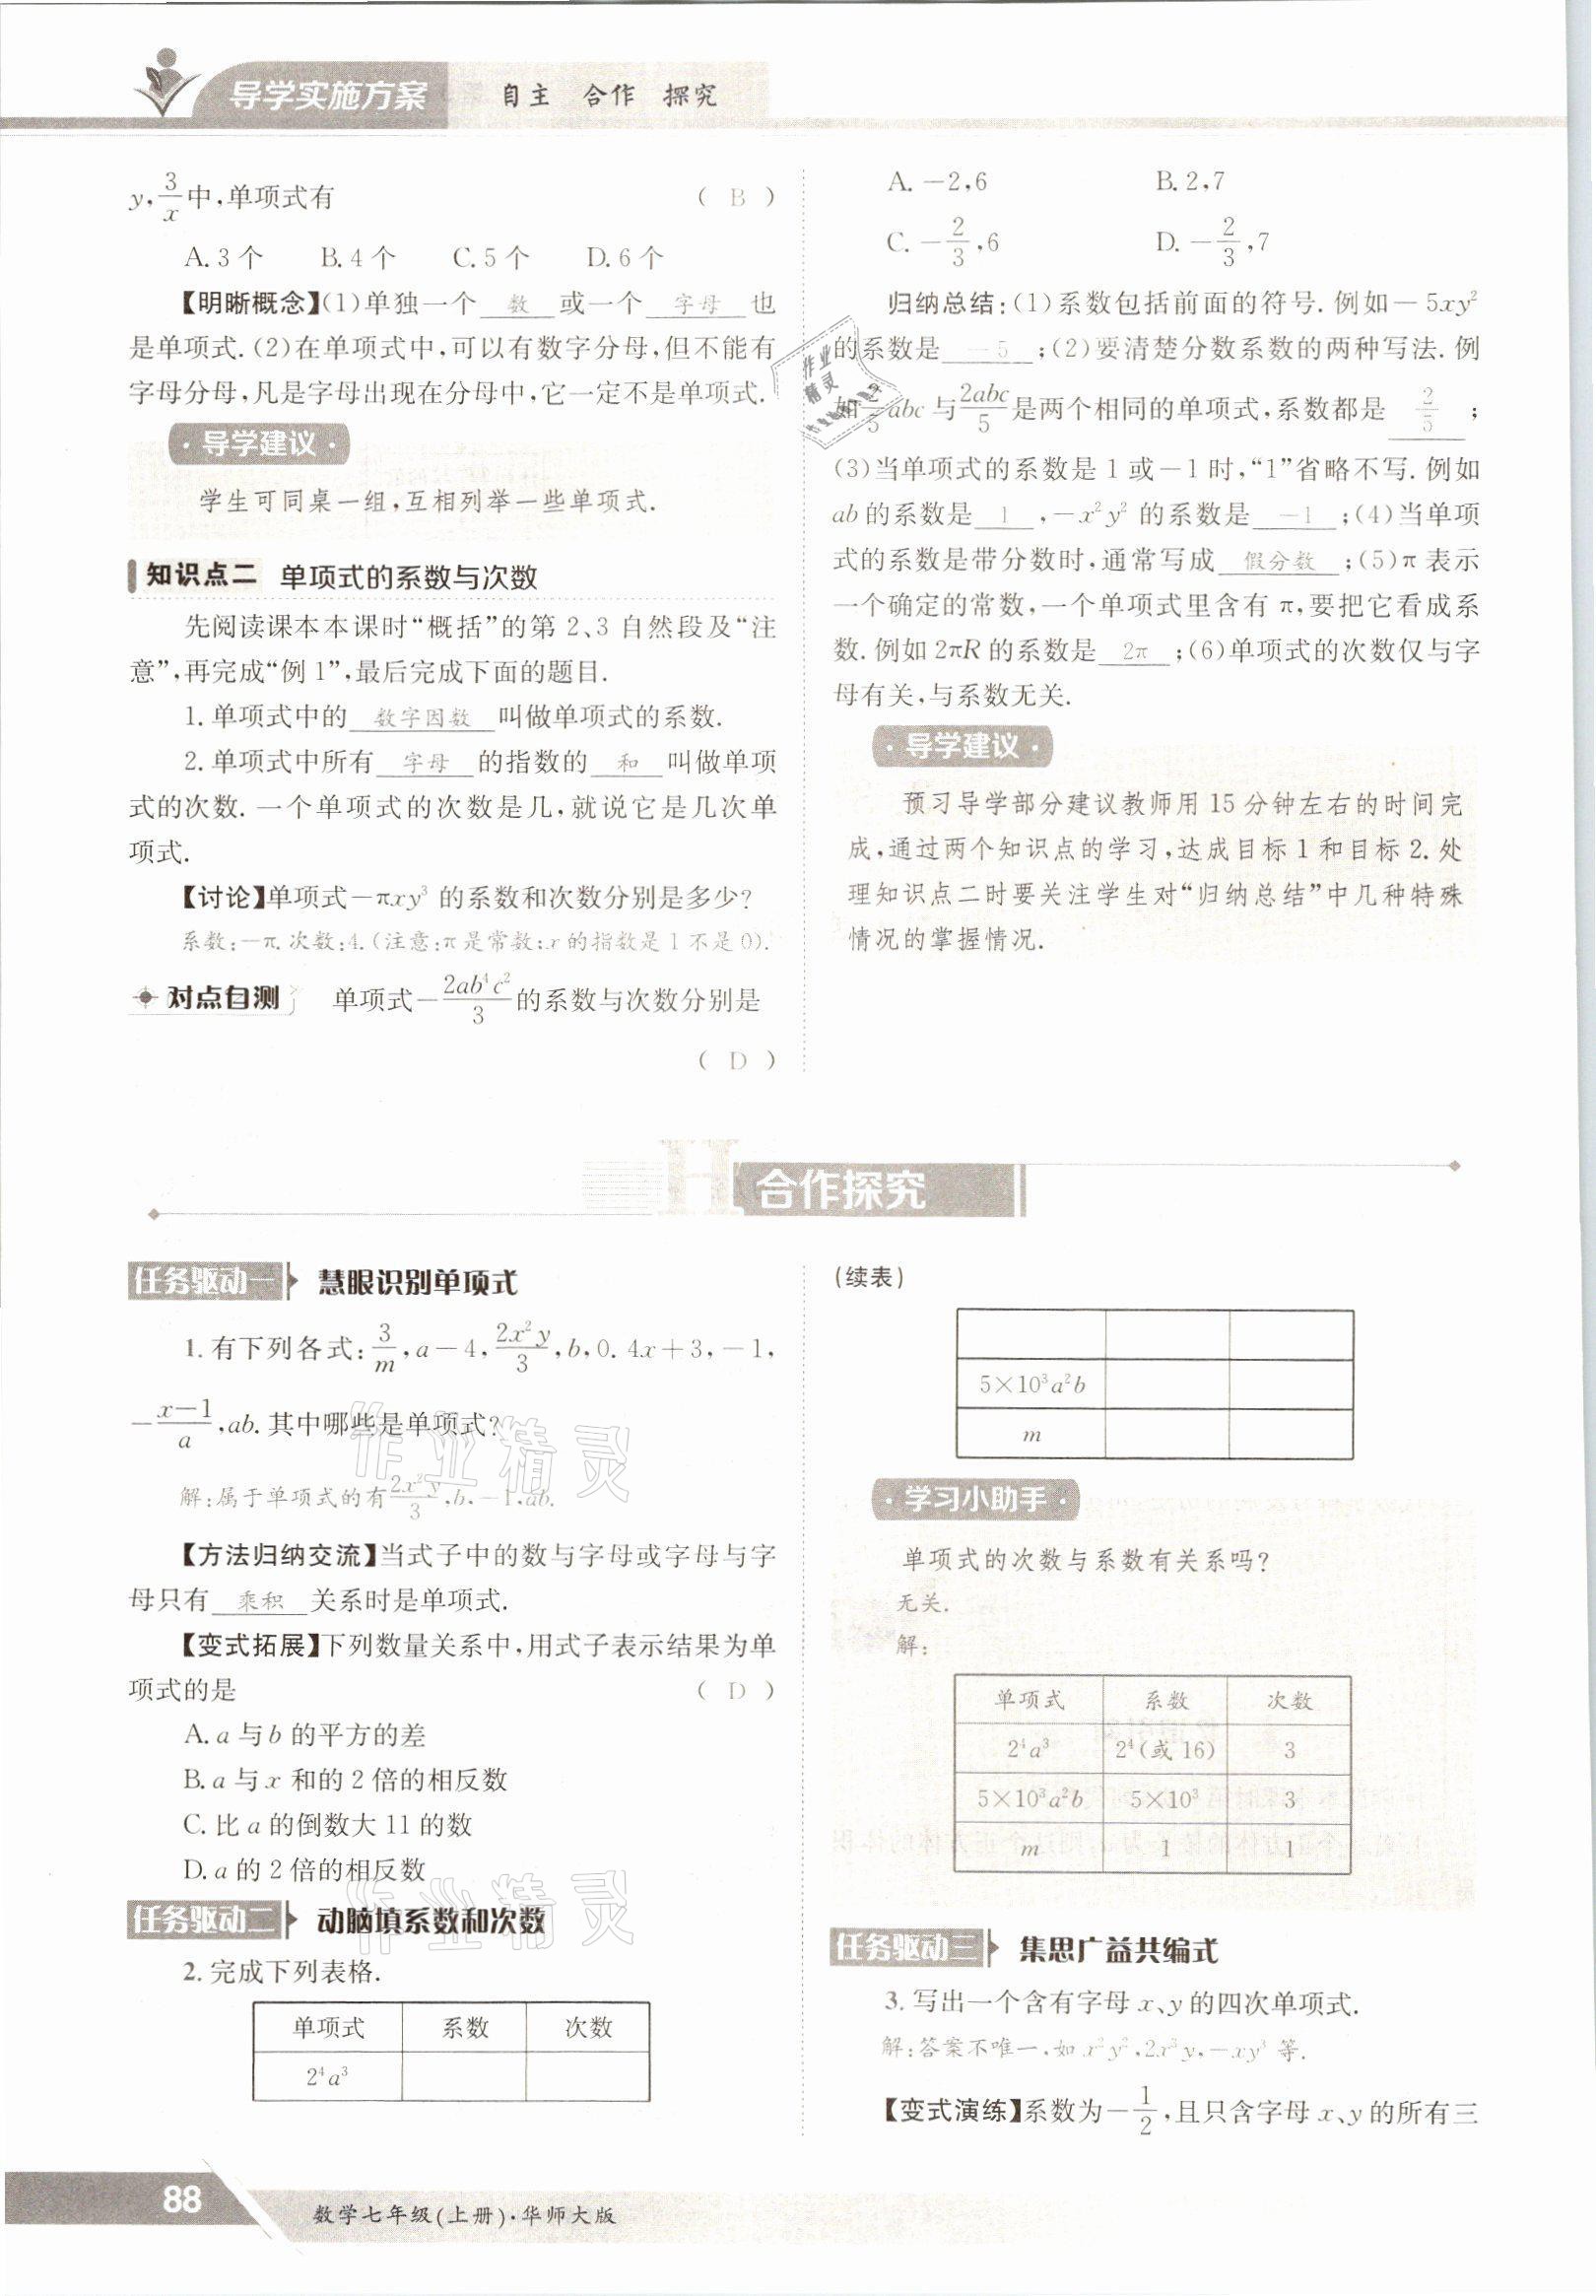 导学实施方案 自主 合作 探究
y,3/x中,单项式有 ( B )
A.3个 B.4个 C.5个 D.6个
【明晰概念】(1)单独一个 数 或一个 字母 也
是单项式.(2)在单项式中,可以有数字分母,但不能有
字母分母,凡是字母出现在分母中,它一定不是单项式.
·导学建议·
学生可同桌一组,互相列举一些单项式.
知识点二 单项式的系数与次数
先阅读课本本课时“概括”的第2、3自然段及“注
意”,再完成“例1”,最后完成下面的题目.
1.单项式中的 数字因数 叫做单项式的系数.
2.单项式中所有 字母 的指数的 和 叫做单项
式的次数.一个单项式的次数是几,就说它是几次单
项式.
【讨论】单项式-πxy³的系数和次数分别是多少?
系数:-π.次数:4.(注意:π是常数;x的指数是1不是0).
对点自测 单项式-2ab⁴c²/3的系数与次数分别是
( D )
A.-2,6 B.2,7
C.-2/3,6 D.-2/3,7
归纳总结:(1)系数包括前面的符号.例如-5xy²
的系数是 -5 ;(2)要清楚分数系数的两种写法.例
如2/5abc与2abc/5是两个相同的单项式,系数都是 2/5 ;
(3)当单项式的系数是1或-1时,“1”省略不写.例如
ab的系数是 1 ,-x²y²的系数是 -1 ;(4)当单项
式的系数是带分数时,通常写成 假分数 ;(5)π表示
一个确定的常数,一个单项式里含有π,要把它看成系
数.例如2πR的系数是 2π ;(6)单项式的次数仅与字
母有关,与系数无关.
·导学建议·
预习导学部分建议教师用15分钟左右的时间完
成,通过两个知识点的学习,达成目标1和目标2.处
理知识点二时要关注学生对“归纳总结”中几种特殊
情况的掌握情况.
作业精灵
H 合作探究
任务驱动一 慧眼识别单项式
1.有下列各式:3/m,a-4,2x²y/3,b,0.4x+3,-1,
-x-1/a,ab.其中哪些是单项式?
解:属于单项式的有2x²y/3,b,-1,ab.
【方法归纳交流】当式子中的数与字母或字母与字
母只有 乘积 关系时是单项式.
【变式拓展】下列数量关系中,用式子表示结果为单
项式的是 ( D )
A.a与b的平方的差
B.a与x和的2倍的相反数
C.比a的倒数大11的数
D.a的2倍的相反数
任务驱动二 动脑填系数和次数
2.完成下列表格.
单项式 系数 次数
2⁴a³
(续表)
5×10³a²b
m
·学习小助手·
单项式的次数与系数有关系吗?
无关.
解:
单项式 系数 次数
2⁴a³ 2⁴(或16) 3
5×10³a²b 5×10³ 3
m 1 1
任务驱动三 集思广益共编式
3.写出一个含有字母x、y的四次单项式.
解:答案不唯一,如x²y²,2x³y,-xy³等.
【变式演练】系数为-1/2,且只含字母x、y的所有三
作业精灵
作业精灵
88 数学七年级(上册)·华师大版